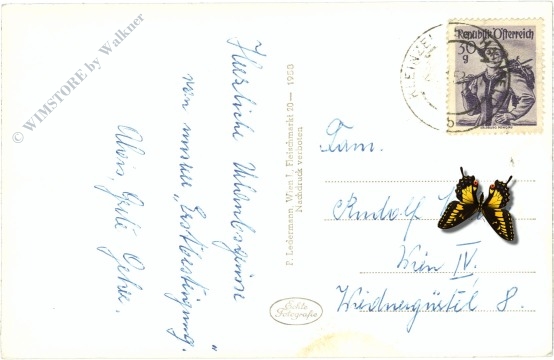 © WIMSTORE by Walkner
Herzliche Urlaubsgrüsse
von unserer „Erstbesteigung"
Alois, Greti
P. Ledermann, Wien I, Fleischmarkt 20 — 1950
Nachdruck verboten
Echte
Fotografie
KLEINZELL
b
Republik Österreich
30
g
Fam.
Rudolf
Wien IV.
Wiednergürtel 8.